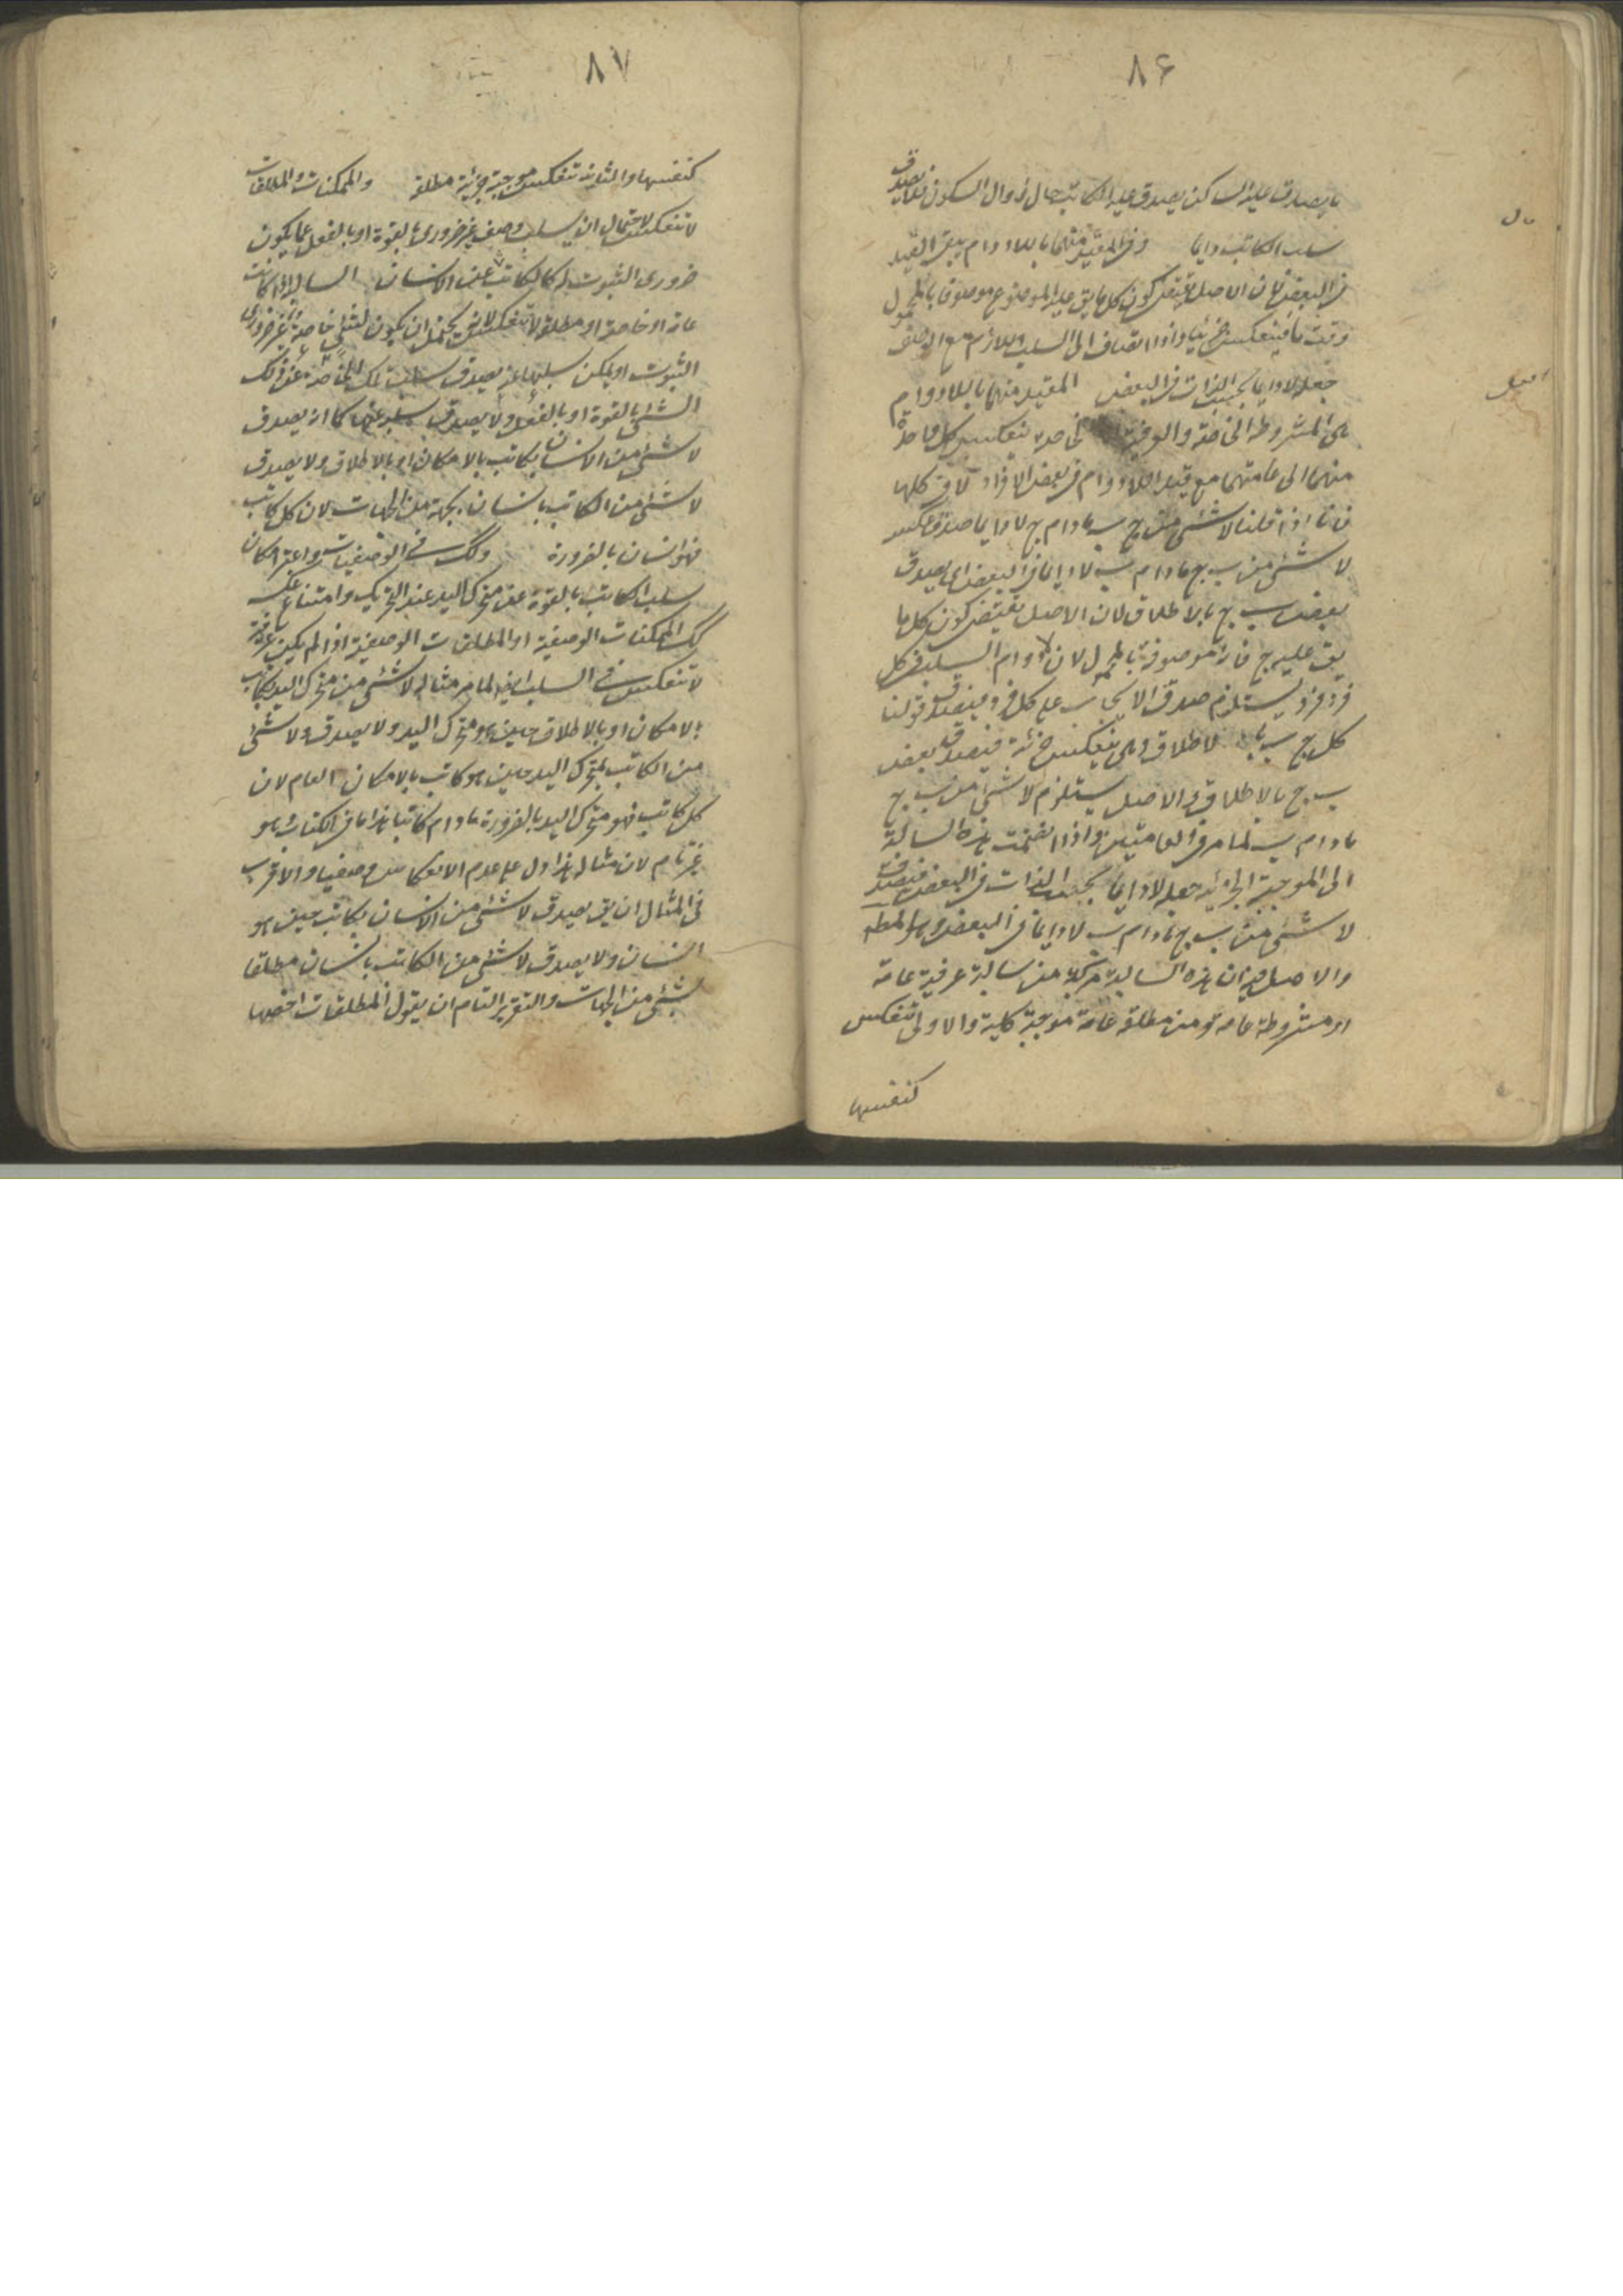 ٨۶
ما يصدق عليه الساكن يصدق عليه الكاتب حال زوال السكون فلا يصدق
سلب الكاتب دايما وفى المقيد منهما باللادوام يبقى القيد
فى البعض لان الاصل يقتضى كون كل ما يق عليه الموضوع موصوفا بالمحمول
وقت ما فينعكس جزئيا واذا انضاف الى السلب اللازم مع الوصف
جعله لا دايما بحسب الذات فى البعض المقيد منهما باللادوام
هى المشروطة الخاصة والعرفية الخاصة تنعكس كل واحدة
منهما الى عامتهما مع قيد اللادوام فى بعض الافراد لا فى كلها
فانا اذا قلنا لا شئ من ج ب مادام ج لا دايما صدق عكسه
لا شئ من ب ج مادام ب لا دايما فى البعض اى يصدق
بعض ب ج بالاطلاق لان الاصل يقتضى كون كل ما
يق عليه ج فانه موصوف بالمحمول لان لا دوام السلب فى كل
فرد فرد يستلزم صدق الايجاب على كل فرد فيصدق قولنا
كل ج ب بالاطلاق وهى ينعكس جزئية فيصدق بعض
ب ج بالاطلاق والاصل يستلزم لا شئ من ب ج
مادام ب لما مر فى العامتين واذا انضمت هذه السالبة
الى الموجبة الجزئية جعله لا دايما بحسب الذات فى البعض فيصدق
لا شئ من ب ج مادام ب لا دايما فى البعض وهو المط
والاصل فيه ان هذه السالبة مركبة من سالبة عرفية عامة
او مشروطة عامة ومن مطلقة عامة موجبة كلية والاولى تنعكس
كنفسها
٨٧
كنفسها والثانية تنعكس موجبة جزئية مطلقة والممكنات والمطلقات
لا تنعكس لاحتمال ان يسلب وصف غير ضرورى بالقوة او بالفعل عما يكون
ضرورى الثبوت له كالكاتب عن الانسان السالبة اذا كانت
عامة او خاصة او مطلقة لا تنعكس لانه يحتمل ان يكون لشئ خاصة غير ضرورى
الثبوت او يمكن سلبها عنه يصدق سلب تلك الخاصة عن ذلك
الشئ بالقوة او بالفعل ولا يصدق سلبه عنها كما انه يصدق
لا شئ من الانسان بكاتب بالامكان او بالاطلاق ولا يصدق
لا شئ من الكاتب بانسان بجهة من الجهات لان كل كاتب
فهو انسان بالضرورة وكك فى الوصفيات واعتبر امكان
سلب الكاتب بالقوة عن متحرك اليد عند التحريك وامتناع عكسه
كك الممكنات الوصفية او المطلقات الوصفية اذا لم يكن عرفية
لا تنعكس فى السلب ايضا لما مر مثاله لا شئ من متحرك اليد بكاتب
بالامكان او بالاطلاق حين هو متحرك اليد ولا يصدق ولا شئ
من الكاتب بمتحرك اليد حين هو كاتب بالامكان العام لان
كل كاتب فهو متحرك اليد بالضرورة مادام كاتبا هذا ما فى الكتاب وهو
غير تام لان مثاله هذا دل على عدم الانعكاس وصفيا والاقرب
فى المثال ان يق يصدق لا شئ من الانسان بكاتب حين هو
انسان ولا يصدق لا شئ من الكاتب بانسان مطلقا
بشئ من الجهات والتقرير التام ان يقول المطلقات اخصها